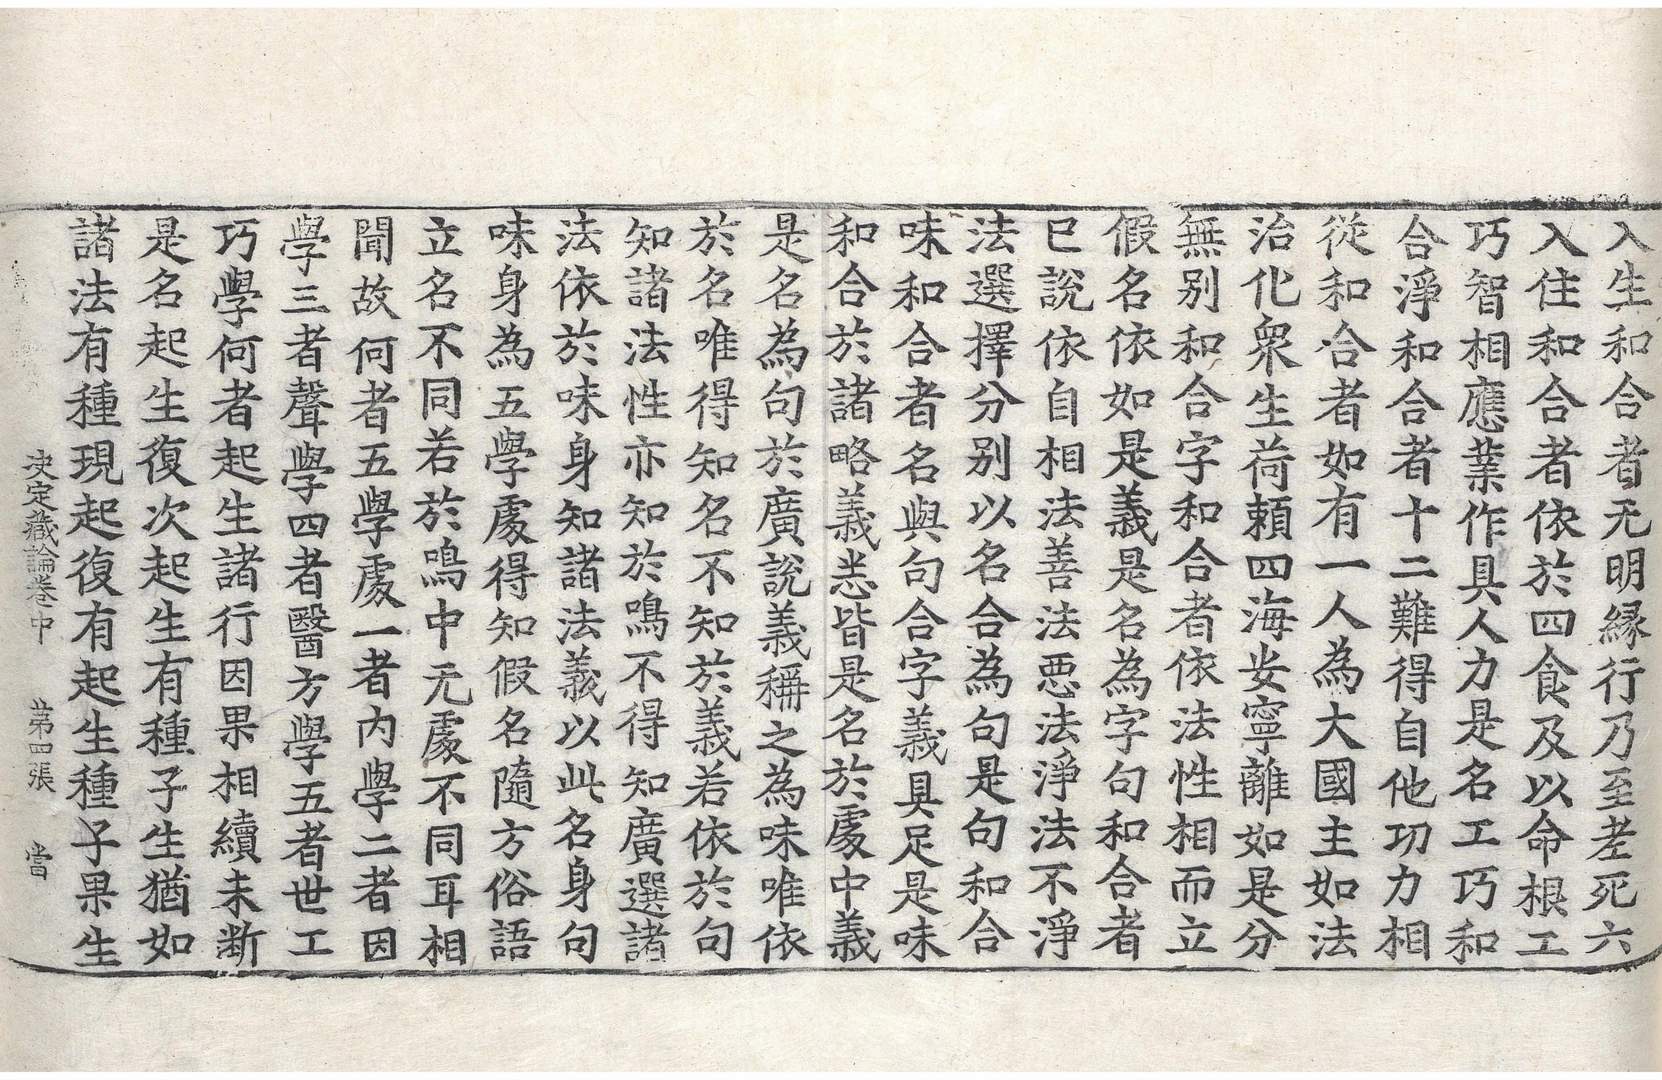 入生和合者无明縁行乃至老死六
入住和合者依於四食及以命根工
巧智相應業作具人力是名工巧和
合淨和合者十二難得自他功力相
從和合者如有一人為大國主如法
治化衆生荷頼四海安寧離如是分
無别和合字和合者依法性相而立
假名依如是義是名為字句和合者
已說依自相法善法惡法淨法不淨
法選擇分别以名合為句是句和合
味和合者名與句合字義具足是味
和合於諸略義悉皆是名於處中義
是名為句於廣說義稱之為味唯依
於名唯得知名不知於義若依於句
知諸法性亦知於鳴不得知廣選諸
法依於味身知諸法義以此名身句
味身為五學處得知假名隨方俗語
立名不同若於鳴中无處不同耳相
聞故何者五學處一者内學二者因
學三者聲學四者醫方學五者世工
巧學何者起生諸行因果相續未断
是名起生復次起生有種子生猶如
諸法有種現起復有起生種子果生
决定藏論卷中 第四張 當